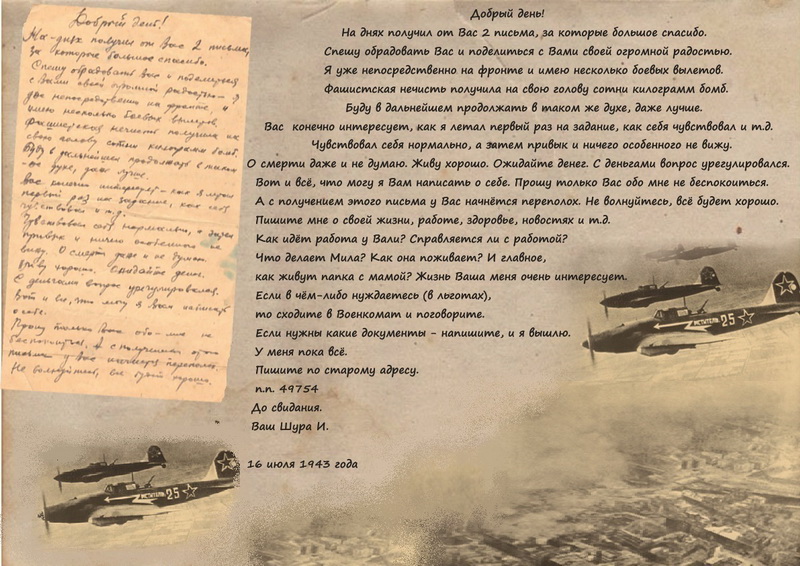 Добрый день!
На-днях получил от Вас 2 письма,
за которые большое спасибо.
Спешу обрадовать Вас и поделиться
с Вами своей огромной радостью. Я
уже непосредственно на фронте и
имею несколько боевых вылетов.
Фашистская нечисть получила на
свою голову сотни килограмм бомб.
Буду в дальнейшем продолжать в таком
же духе, даже лучше.
Вас конечно интересует, как я летал
первый раз на задание, как себя
чувствовал и т.д.
Чувствовал себя нормально, а затем
привык и ничего особенного не
вижу. О смерти даже и не думаю.
Живу хорошо. Ожидайте денег.
С деньгами вопрос урегулировался.
Вот и все, что могу я Вам написать
о себе.
Прошу только Вас обо мне не
беспокоиться. А с получением этого
письма у Вас начнется переполох.
Не волнуйтесь, все будет хорошо.
Добрый день!
На днях получил от Вас 2 письма, за которые большое спасибо.
Спешу обрадовать Вас и поделиться с Вами своей огромной радостью.
Я уже непосредственно на фронте и имею несколько боевых вылетов.
Фашистская нечисть получила на свою голову сотни килограмм бомб.
Буду в дальнейшем продолжать в таком же духе, даже лучше.
Вас конечно интересует, как я летал первый раз на задание, как себя чувствовал и т.д.
Чувствовал себя нормально, а затем привык и ничего особенного не вижу.
О смерти даже и не думаю. Живу хорошо. Ожидайте денег. С деньгами вопрос урегулировался.
Вот и всё, что могу я Вам написать о себе. Прошу только Вас обо мне не беспокоиться.
А с получением этого письма у Вас начнётся переполох. Не волнуйтесь, всё будет хорошо.
Пишите мне о своей жизни, работе, здоровье, новостях и т.д.
Как идёт работа у Вали? Справляется ли с работой?
Что делает Мила? Как она поживает? И главное,
как живут папка с мамой? Жизнь Ваша меня очень интересует.
Если в чём-либо нуждаетесь (в льготах),
то сходите в Военкомат и поговорите.
Если нужны какие документы – напишите, и я вышлю.
У меня пока всё.
Пишите по старому адресу.
п.п. 49754
До свидания.
Ваш Шура И.
16 июля 1943 года
МСТИТЕЛЬ 25
МСТИТЕЛЬ 25